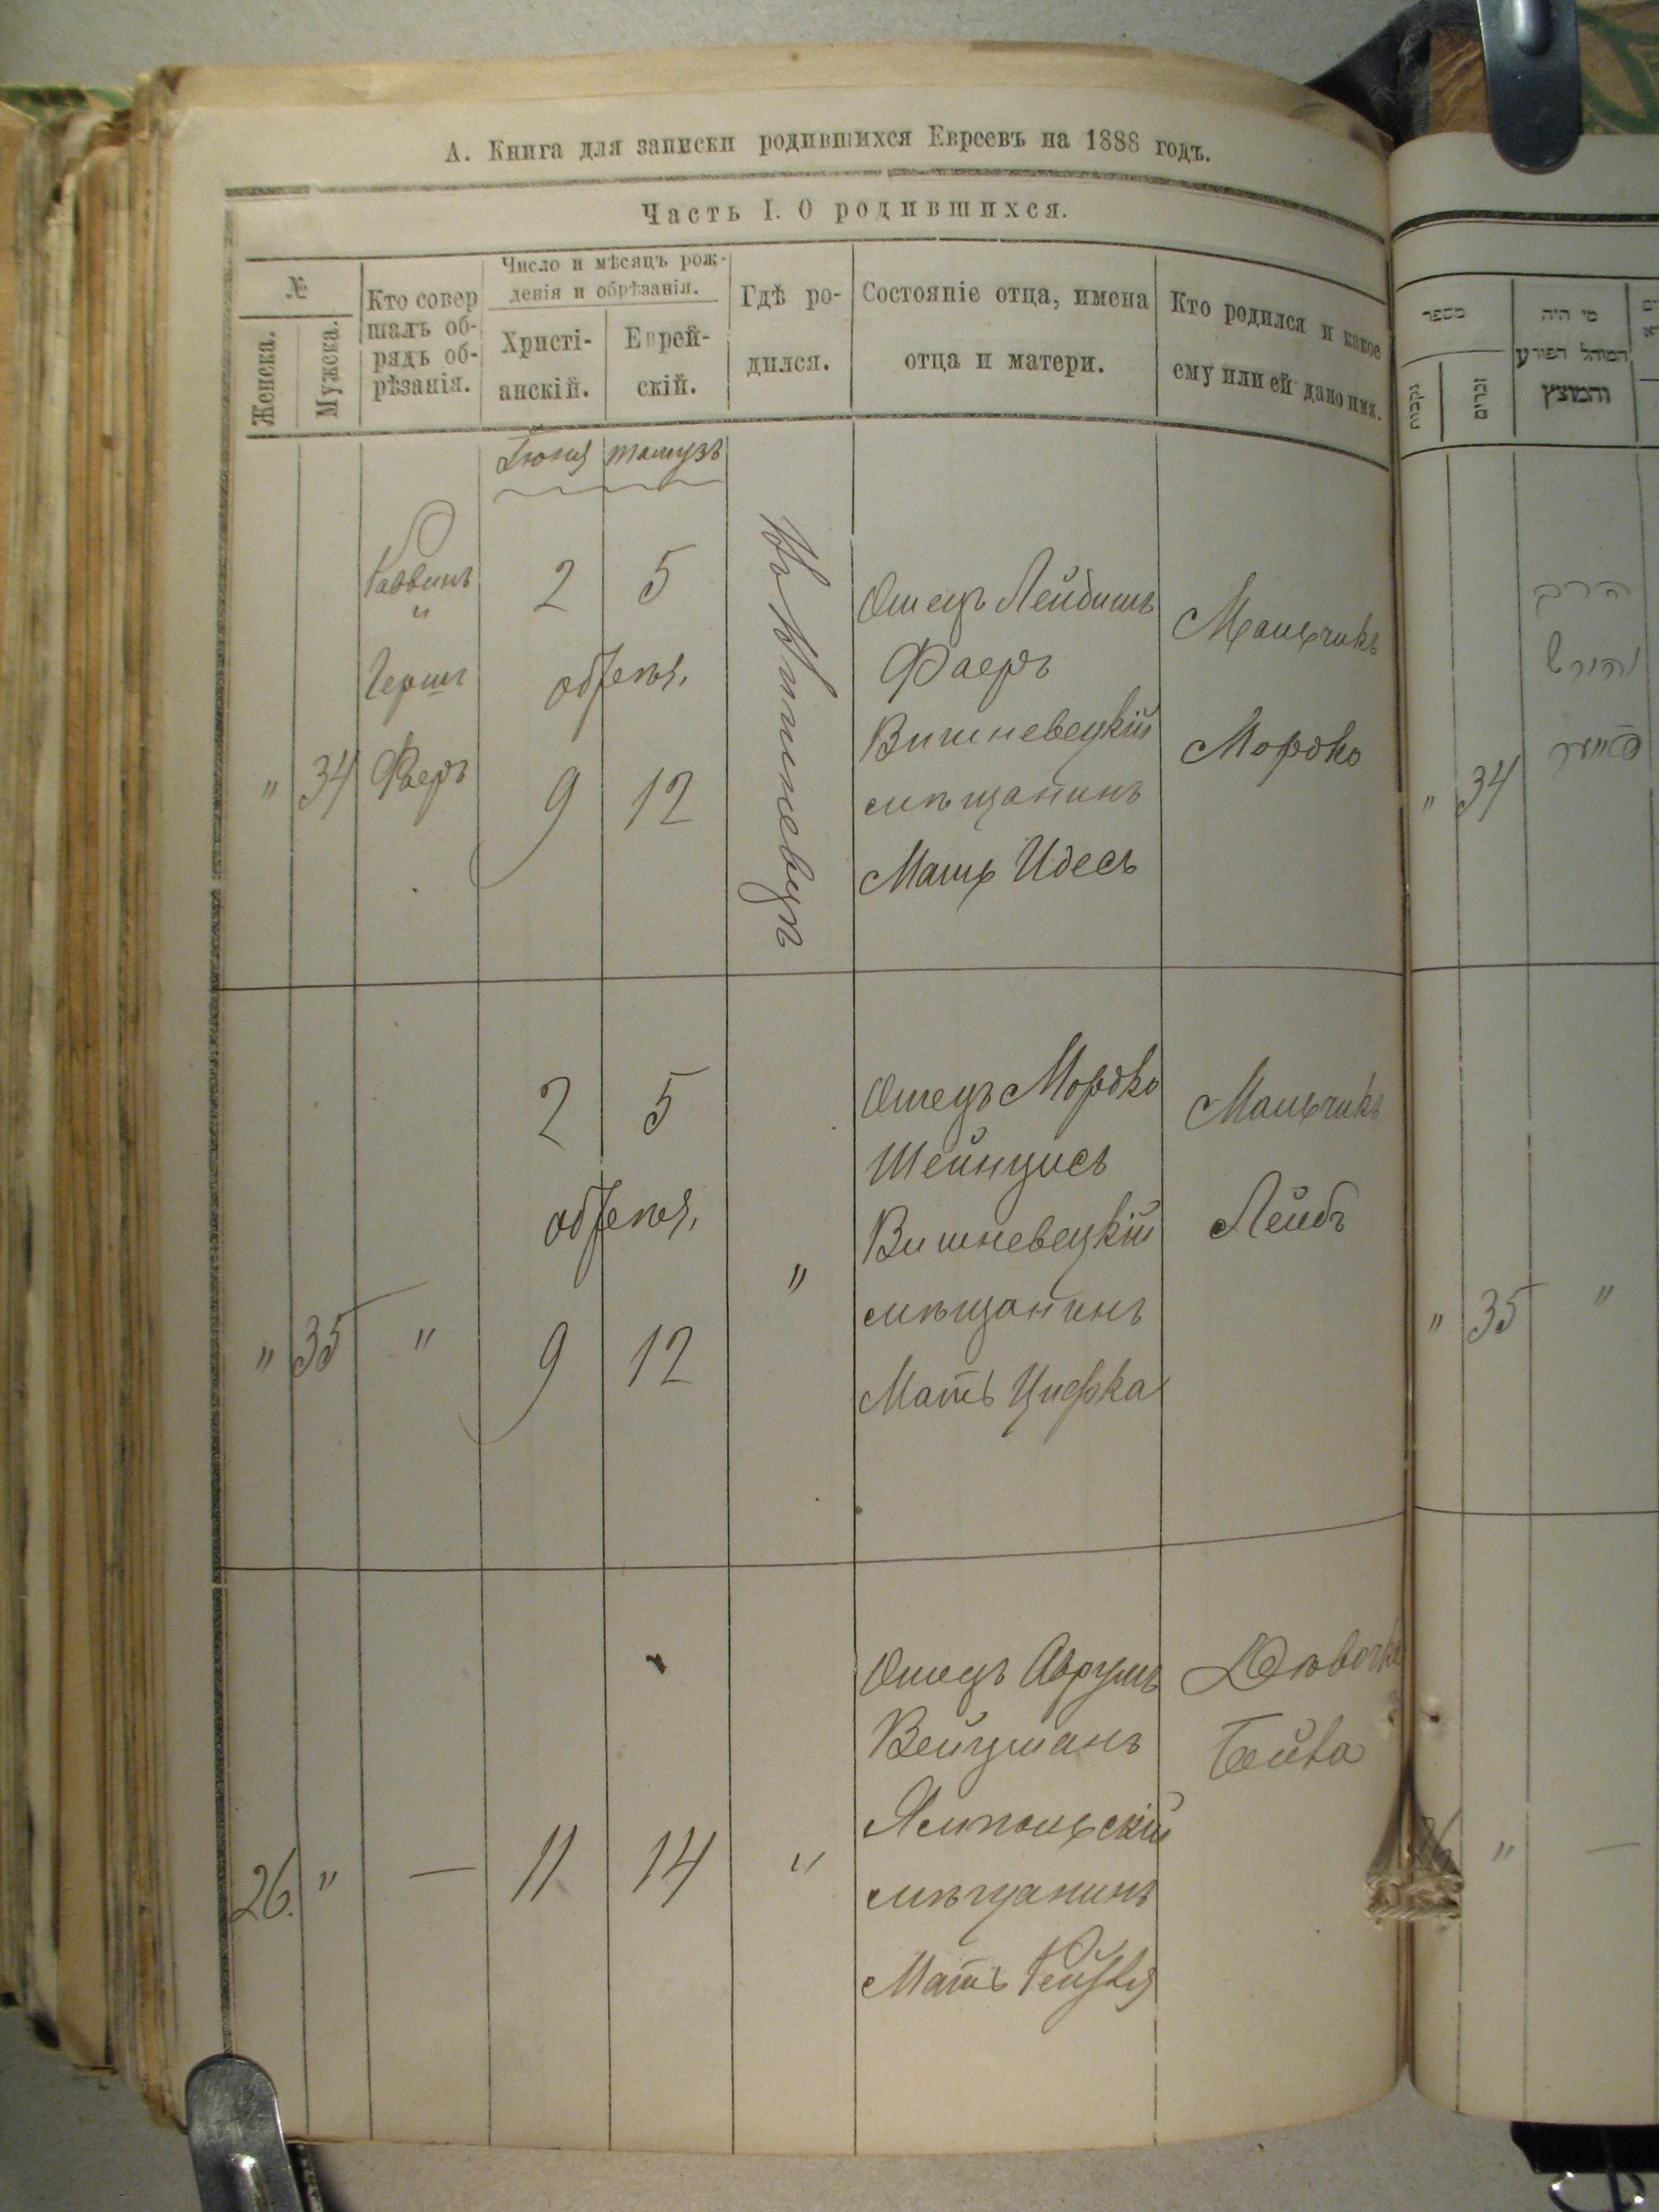 А. Книга для записки родившихся Евреевъ на 1888 годъ.
Часть I. О родившихся.
№
Женска.
Мужска.
Кто совер
шалъ об-
рядъ об-
рѣзанія.
Число и мѣсяцъ рож-
денія и обрѣзанія.
Христі-
анскій.
Еврей-
скій.
Гдѣ ро-
дился.
Состояніе отца, имена
отца и матери.
Кто родился и какое
ему или ей дано имя.
Іюня
тамузъ
"
34
Раввинъ
и
Герш
Фаеръ
2
5
обрезан.
9
12
Въ Вишневцѣ
Отецъ Лейбишъ
Фаеръ
Вишневецкій
мѣщанинъ
Мать Идесъ
Мальчикъ
Мордко
"
35
"
2
5
обрезан.
9
12
"
Отецъ Мордко
Шейнцисъ
Вишневецкій
мѣщанинъ
Мать Ципка
Мальчикъ
Лейбъ
26.
"
—
11
14
"
Отецъ Аврумъ
Вейцманъ
Ямпольскій
мѣщанинъ
Мать
Дѣвочка
מספר
נקבות
זכרים
מי היה
המוהל הפורע
והמוצץ
"
34
הרב
והירש
פאייער
"
35
"
26
"
—